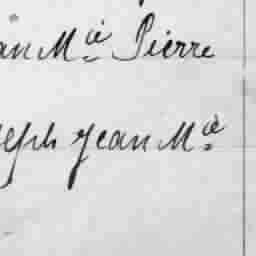 an Mie Pierre
seph Jean Mie